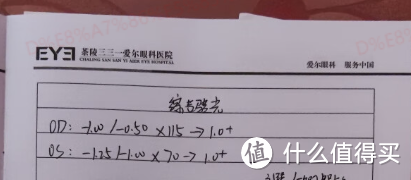 EYE 茶陵三三一爱尔眼科医院
CHALING SAN SAN YI AIER EYE HOSPITAL
爱尔眼科 服务中国
综合验光
OD: -1.00 /-0.50 ×115 → 1.0+
OS: -1.25 /-1.00 × 70 → 1.0+
值 什么值得买